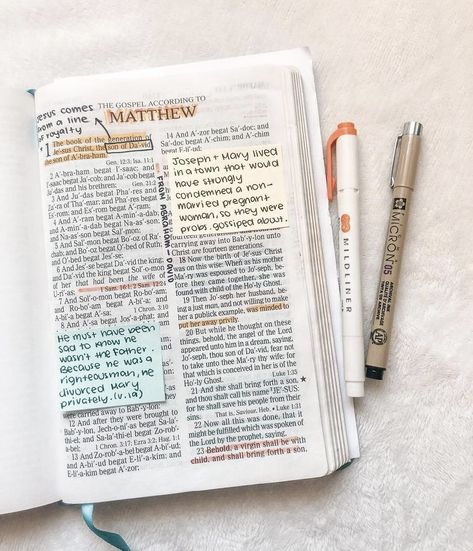 Jesus comes
from a line
of royalty
THE GOSPEL ACCORDING TO
MATTHEW
1 The book of the generation of
Je´-sus Christ, the son of Da´-vid,
the son of A´-bra-ham.
Gen. 12:3; Isa. 11:1
2 A´-bra-ham begat I´-saac; and
I´-saac begat Ja´-cob; and Ja´-cob begat
Ju´-das and his brethren;
Gen. 21:2
3 And Ju´-das begat Pha´-res and
Za´-ra of Tha´-mar; and Pha´-res begat
Es´-rom; and Es´-rom begat A´-ram;
4 And A´-ram begat A-min´-a-dab;
and A-min´-a-dab begat Na-as´-son;
and Na-as´-son begat Sal´-mon;
5 And Sal´-mon begat Bo´-oz of Ra´-
chab; and Bo´-oz begat O´-bed of Ruth;
and O´-bed begat Jes´-se;
6 And Jes´-se begat Da´-vid the king;
and Da´-vid the king begat Sol´-o-mon
of her that had been the wife of
1 Sam. 16:1; 2 Sam. 12:24
7 And Sol´-o-mon begat Ro-bo´-am;
and Ro-bo´-am begat A-bi´-a; and
A-bi´-a begat A´-sa;
1 Chron. 3:10
8 And A´-sa begat Jos´-a-phat; and
FROM ABRAHAM → DAVID
He must have been
sad to know he
wasn't the father.
Because he was a
righteous man, he
divorced Mary
privately. (v.19)
were carried away to Bab´-y-lon:
12 And after they were brought to
Bab´-y-lon, Jech-o-ni´-as begat Sa-la´-
thi-el; and Sa-la´-thi-el begat Zo-rob´-
a-bel;
1 Chron. 3:17; Ezra 3:2; Hag. 1:1
13 And Zo-rob´-a-bel begat A-bi´-ud;
and A-bi´-ud begat E-li´-a-kim; and
E-li´-a-kim begat A´-zor;
14 And A´-zor begat Sa´-doc; and
Sa´-doc begat A´-chim; and A´-chim
begat E-li´-ud;
Joseph + Mary lived
in a town that would
have strongly
condemned a non-
married pregnant
woman, so they were
probs. gossiped about.
carrying away into Bab´-y-lon unto
Christ are fourteen generations.
18 Now the birth of Je´-sus Christ
was on this wise: When as his mother
Ma´-ry was espoused to Jo´-seph, be-
fore they came together, she was
found with child of the Holy Ghost.
19 Then Jo´-seph her husband, be-
ing a just man, and not willing to make
her a publick example, was minded to
put her away privily.
20 But while he thought on these
things, behold, the angel of the Lord
appeared unto him in a dream, saying,
Jo´-seph, thou son of Da´-vid, fear not
to take unto thee Ma´-ry thy wife: for
that which is conceived in her is of the
Holy Ghost.
Luke 1:35
21 And she shall bring forth a son,
and thou shalt call his name JE´-SUS:
for he shall save his people from their
sins.
That is, Saviour, Heb. • Luke 1:31
22 Now all this was done, that it
might be fulfilled which was spoken of
the Lord by the prophet, saying,
23 Behold, a virgin shall be with
child, and shall bring forth a son,
MILDLINER
MICRON 05